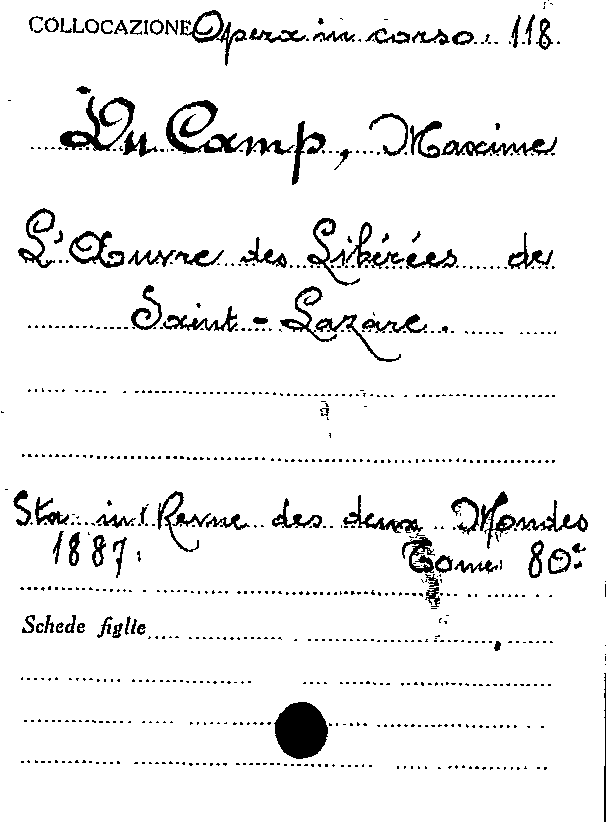 COLLOCAZIONE Opera in corso. 118
Du Camp, Maxime
L'Œuvre des Libérées de
Saint-Lazare.
Sta in: Revue des deux Mondes
1887. Tome 80e
Schede figlie